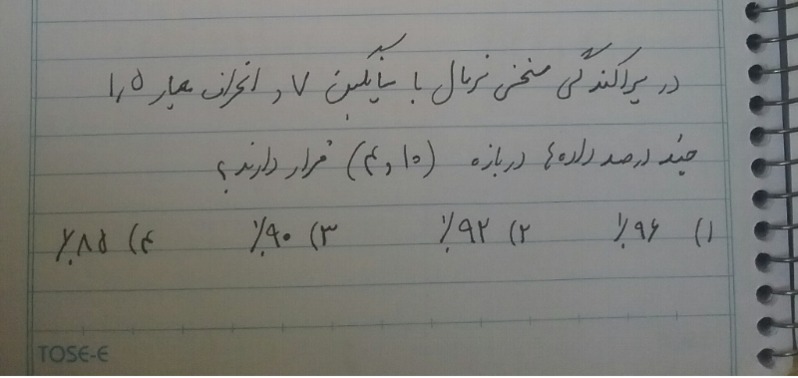 در پراکندگی منحنی نرمال با میانگین ۷ و انحراف معیار ۱٫۵
چند درصد داده‌ها در بازه (۱۰ و ۴) قرار دارند؟
۱) ۹۶٪ ۲) ۹۲٪ ۳) ۹۰٪ ۴) ۸۵٪
TOSE-E